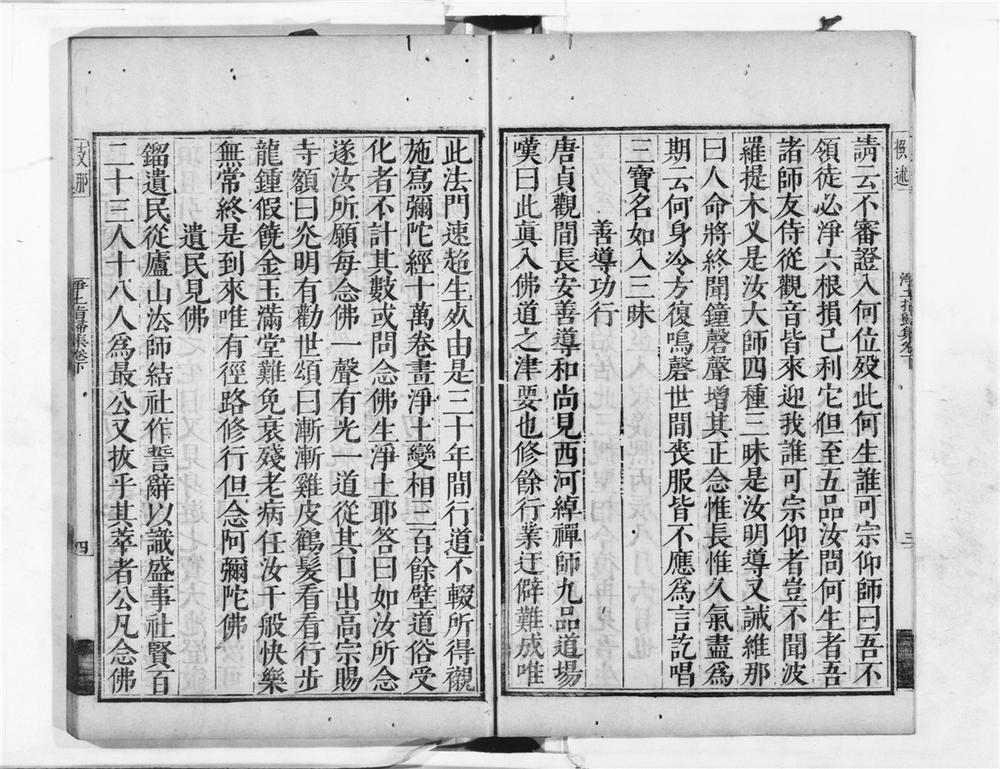 請云不審證入何位歿此何生誰可宗仰師曰吾不
領徒必淨六根損己利它但至五品汝問何生者吾
諸師友侍從觀音皆來迎我誰可宗仰者豈不聞波
羅提木叉是汝大師四種三昧是汝明導又誡維那
曰人命將終聞鐘磬聲增其正念惟長惟久氣盡爲
期云何身冷方復鳴磬世間喪服皆不應爲言訖唱
三寶名如入三昧
善導功行
唐貞觀間長安善導和尚見西河綽禪師九品道場
嘆曰此眞入佛道之津要也修餘行業迂僻難成唯
此法門速超生死由是三十年間行道不輟所得襯
施寫彌陀經十萬卷畫淨土變相三百餘壁道俗受
化者不計其數或問念佛生淨土耶答曰如汝所念
遂汝所願每念佛一聲有光一道從其口出高宗賜
寺額曰光明有勸世頌曰漸漸雞皮鶴髮看看行步
龍鍾假饒金玉滿堂難免衰殘老病任汝千般快樂
無常終是到來唯有徑路修行但念阿彌陀佛
遺民見佛
鎦遺民從廬山法師結社作誓辭以識盛事社賢百
二十三人十八人爲最公又拔乎其萃者公凡念佛
三
四